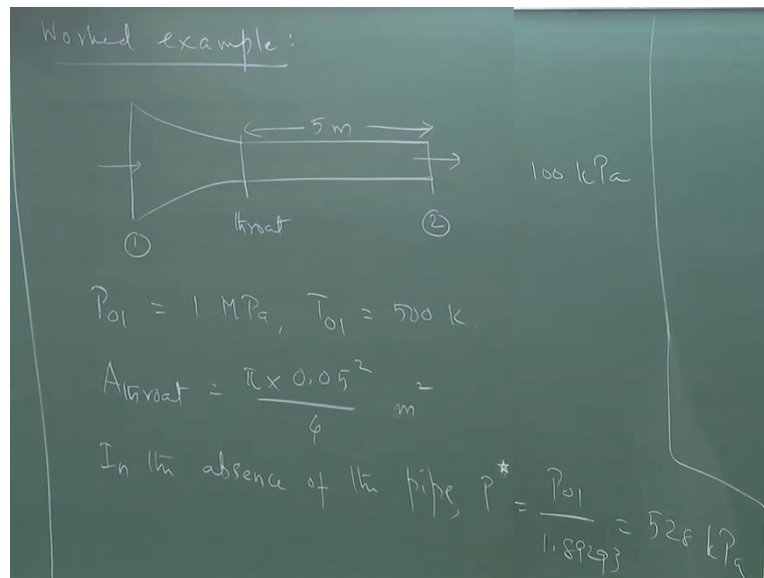 Worked example:
5 m
100 kPa
throat
①
②
P₀₁ = 1 MPa, T₀₁ = 500 K.
A_throat = π × 0.05² / 4 m²
In the absence of the pipe, P* = P₀₁ / 1.89293 = 528 kPa